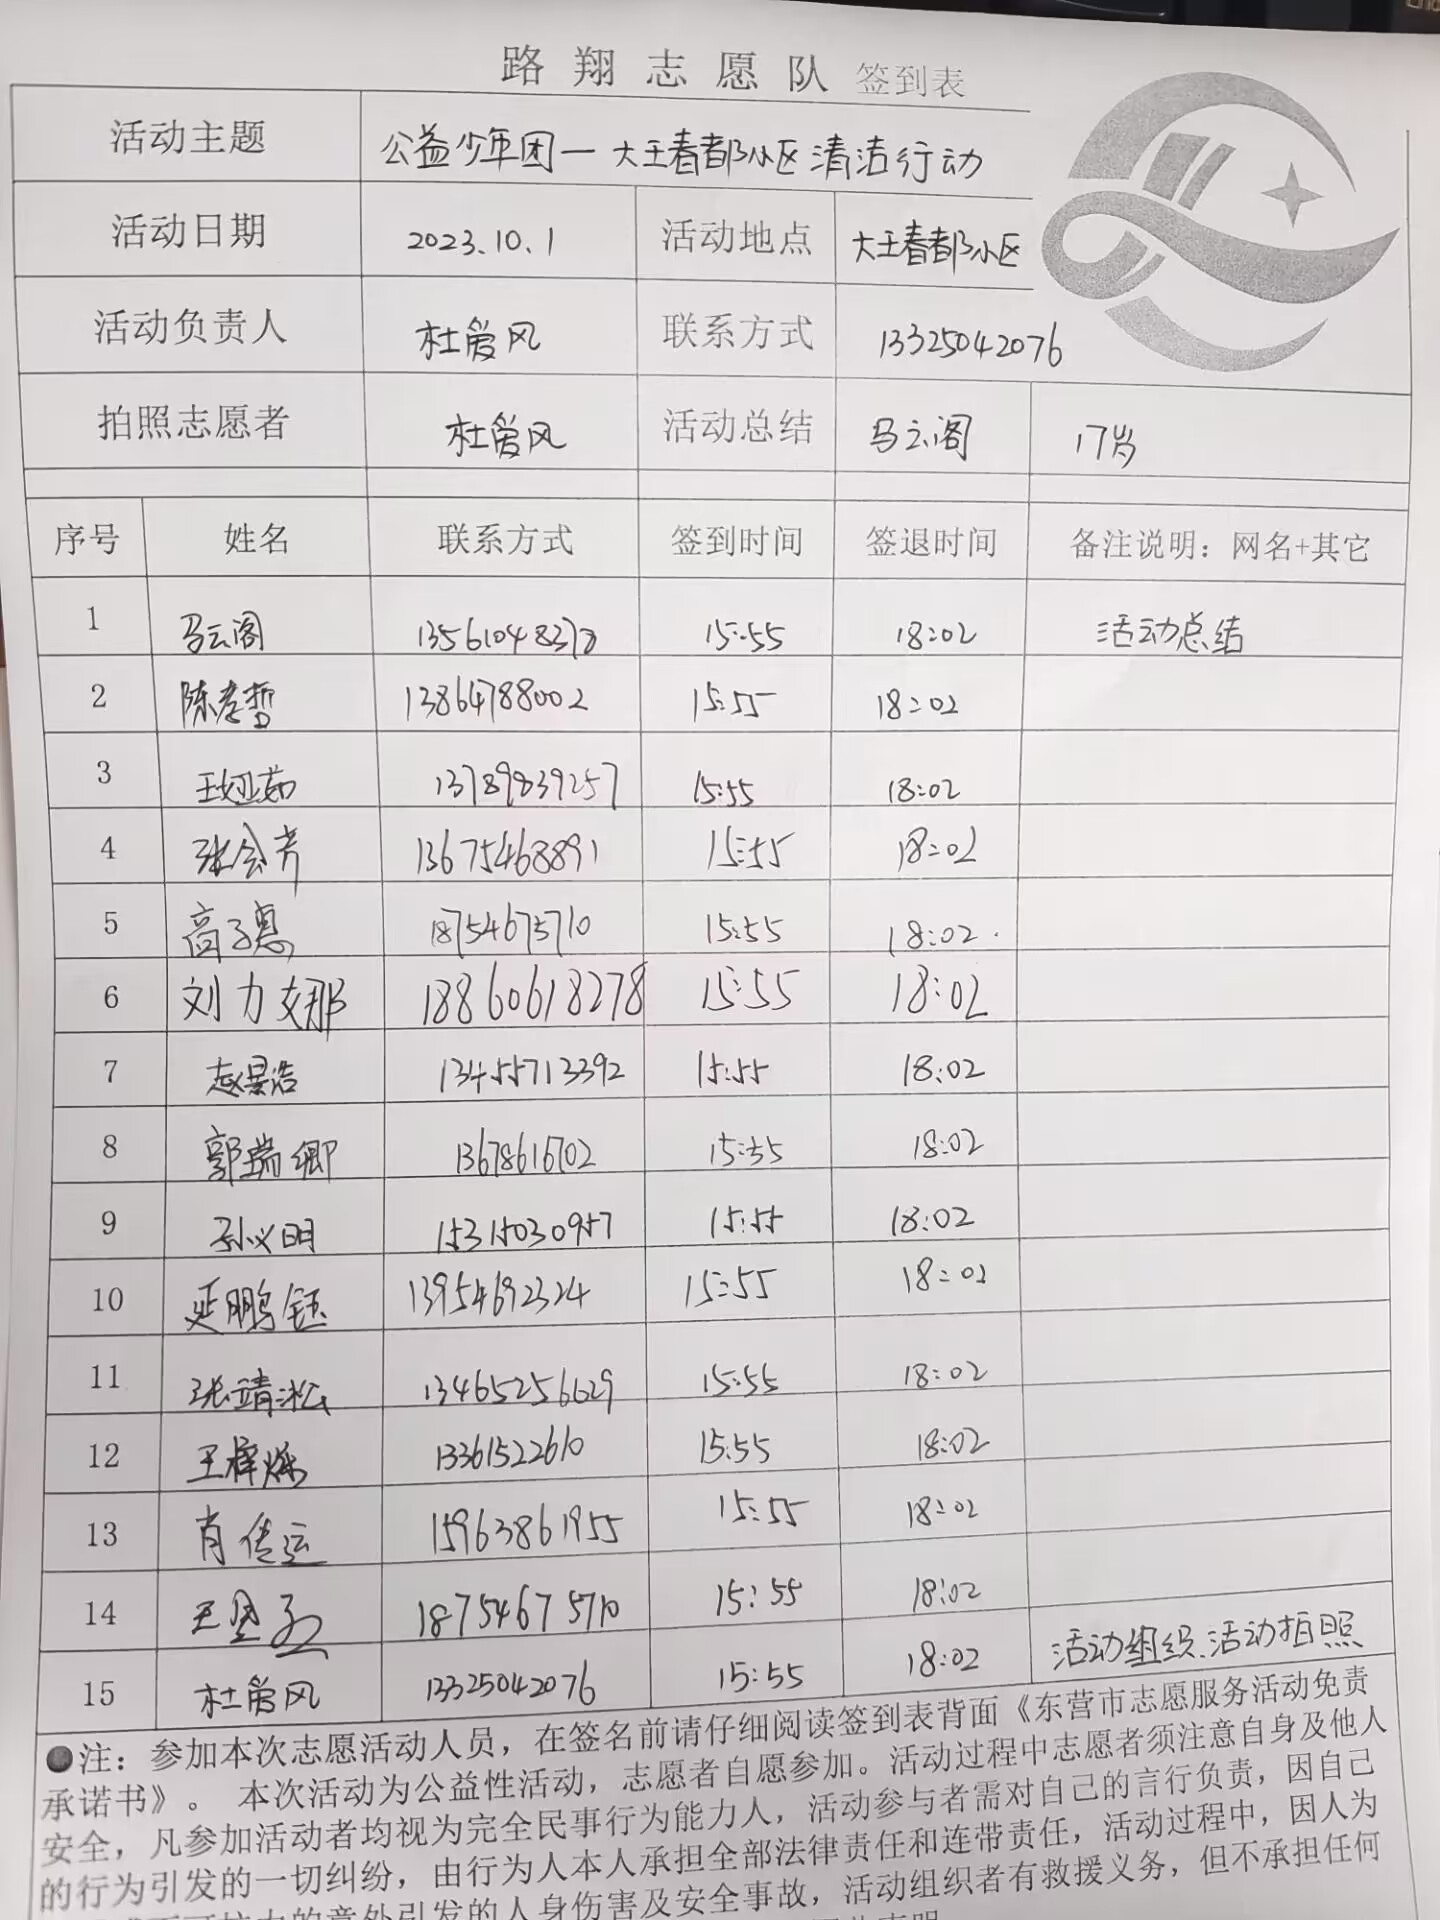 路翔志愿队 签到表
活动主题 公益少年团一大王春都小区清洁行动
活动日期 2023.10.1 活动地点 大王春都小区
活动负责人 杜爱风 联系方式 13325042076
拍照志愿者 杜爱风 活动总结 马云阁 17岁
序号 姓名 联系方式 签到时间 签退时间 备注说明：网名+其它
1 马云阁 15:55 18:02 活动总结
2 陈孝哲 13864788002 15:55 18:02
3 王娅茹 13789839257 15:55 18:02
4 张会芳 13675468891 15:55 18:02
5 高子惠 18754675710 15:55 18:02
6 刘力娜 18860618278 15:55 18:02
7 赵昱浩 13455713392 15:55 18:02
8 郭瑞卿 13678616702 15:55 18:02
9 孙义明 15315030957 15:55 18:02
10 延鹏钰 13954692324 15:55 18:02
11 张靖淞 13465256629 15:55 18:02
12 13361522610 15:55 18:02
13 肖传运 15963861955 15:55 18:02
14 18754675710 15:55 18:02
15 杜爱风 13325042076 15:55 18:02 活动组织、活动拍照
●注：参加本次志愿活动人员，在签名前请仔细阅读签到表背面《东营市志愿服务活动免责
承诺书》。 本次活动为公益性活动，志愿者自愿参加。活动过程中志愿者须注意自身及他人
安全，凡参加活动者均视为完全民事行为能力人，活动参与者需对自己的言行负责，因自己
的行为引发的一切纠纷，由行为人本人承担全部法律责任和连带责任，活动过程中，因人为
的意外引发的人身伤害及安全事故，活动组织者有救援义务，但不承担任何